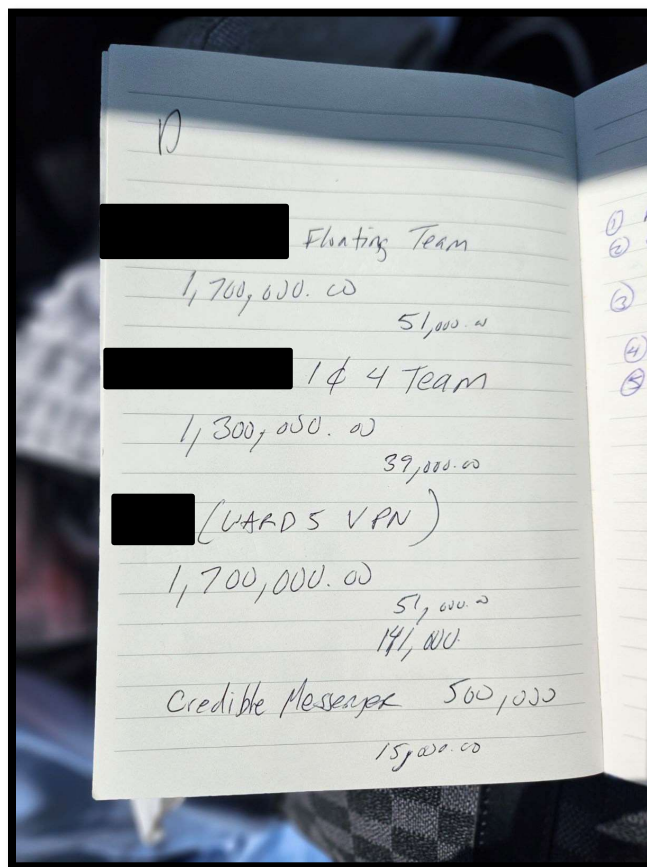 Floating Team
1,700,000.00
51,000.00
1 & 4 Team
1,300,000.00
39,000.00
(WARD 5 VPN)
1,700,000.00
51,000.00
141,000
Credible Messenger 500,000
15,000.00
①
②
③
④
⑤